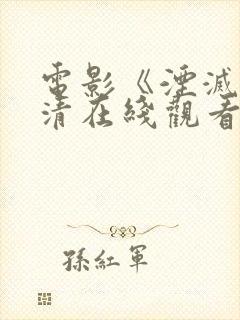 電影《湮滅
清在綫觀看
孫紅軍